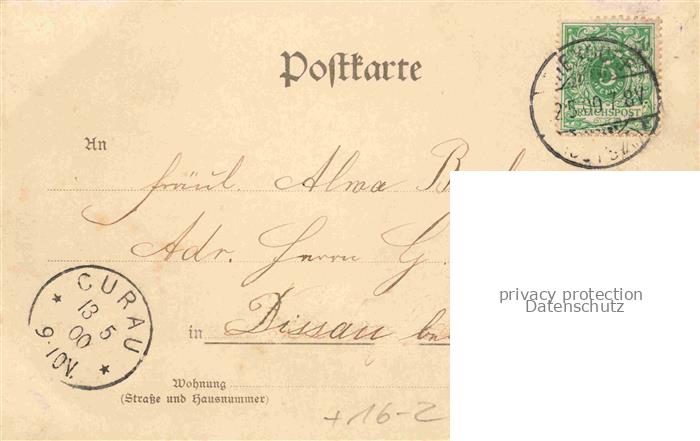 Postkarte
5
REICHSPOST
An
Fräul. Alwa
Adr. Herrn G.
in Dissau
CURAU
13 5
00
9-10V.
Wohnung
(Straße und Hausnummer)
+16-2
privacy protection
Datenschutz